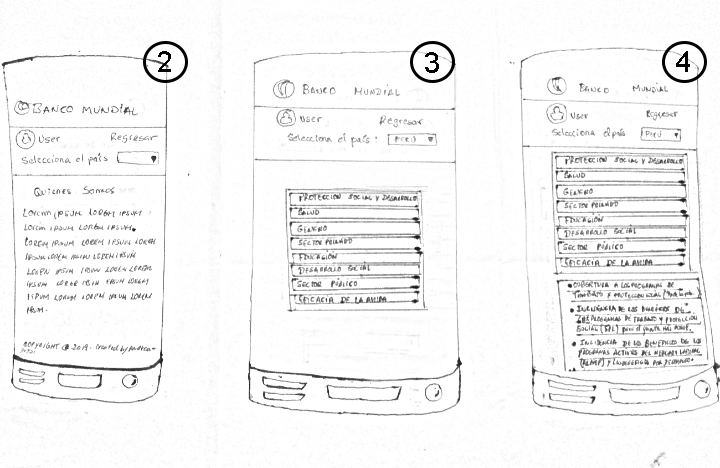 2
BANCO MUNDIAL
User Regresar
Selecciona el país
Quienes Somos
LOREM IPSUM LOREM IPSUM
LOREM IPSUM LOREM IPSUM
LOREM IPSUM LOREM IPSUM LOREM
IPSUM LOREM IPSUM LOREM IPSUM
LOREM IPSUM IPSUM LOREM LOREM
IPSUM LOREM IPSUM IPSUM LOREM
IPSUM LOREM LOREM IPSUM LOREM
IPSUM.
COPYRIGHT @ 2019. Created by Andrea
3
BANCO MUNDIAL
User Regresar
Selecciona el país : PERÚ
PROTECCION SOCIAL Y DESARROLLO
SALUD
GENERO
SECTOR PRIVADO
EDUCACIÓN
DESARROLLO SOCIAL
SECTOR PÚBLICO
EFICACIA DE LA AYUDA
4
BANCO MUNDIAL
User Regresar
Selecciona el país PERÚ
PROTECCION SOCIAL Y DESARROLLO
SALUD
GENERO
SECTOR PRIVADO
EDUCACIÓN
DESARROLLO SOCIAL
SECTOR PÚBLICO
EFICACIA DE LA AYUDA
• COBERTURA A LOS PROGRAMAS DE
TRABAJO Y PROTECCION SOCIAL
• INCIDENCIA DE LOS BENEFICIOS DE
PROGRAMAS DE TRABAJO Y PROTECCION
SOCIAL (SPL) para el quintil más POBRE.
• INCIDENCIA DE LOS BENEFICIOS DE LOS
PROGRAMAS ACTIVOS DEL MERCADO LABORAL
(ALMP) Y